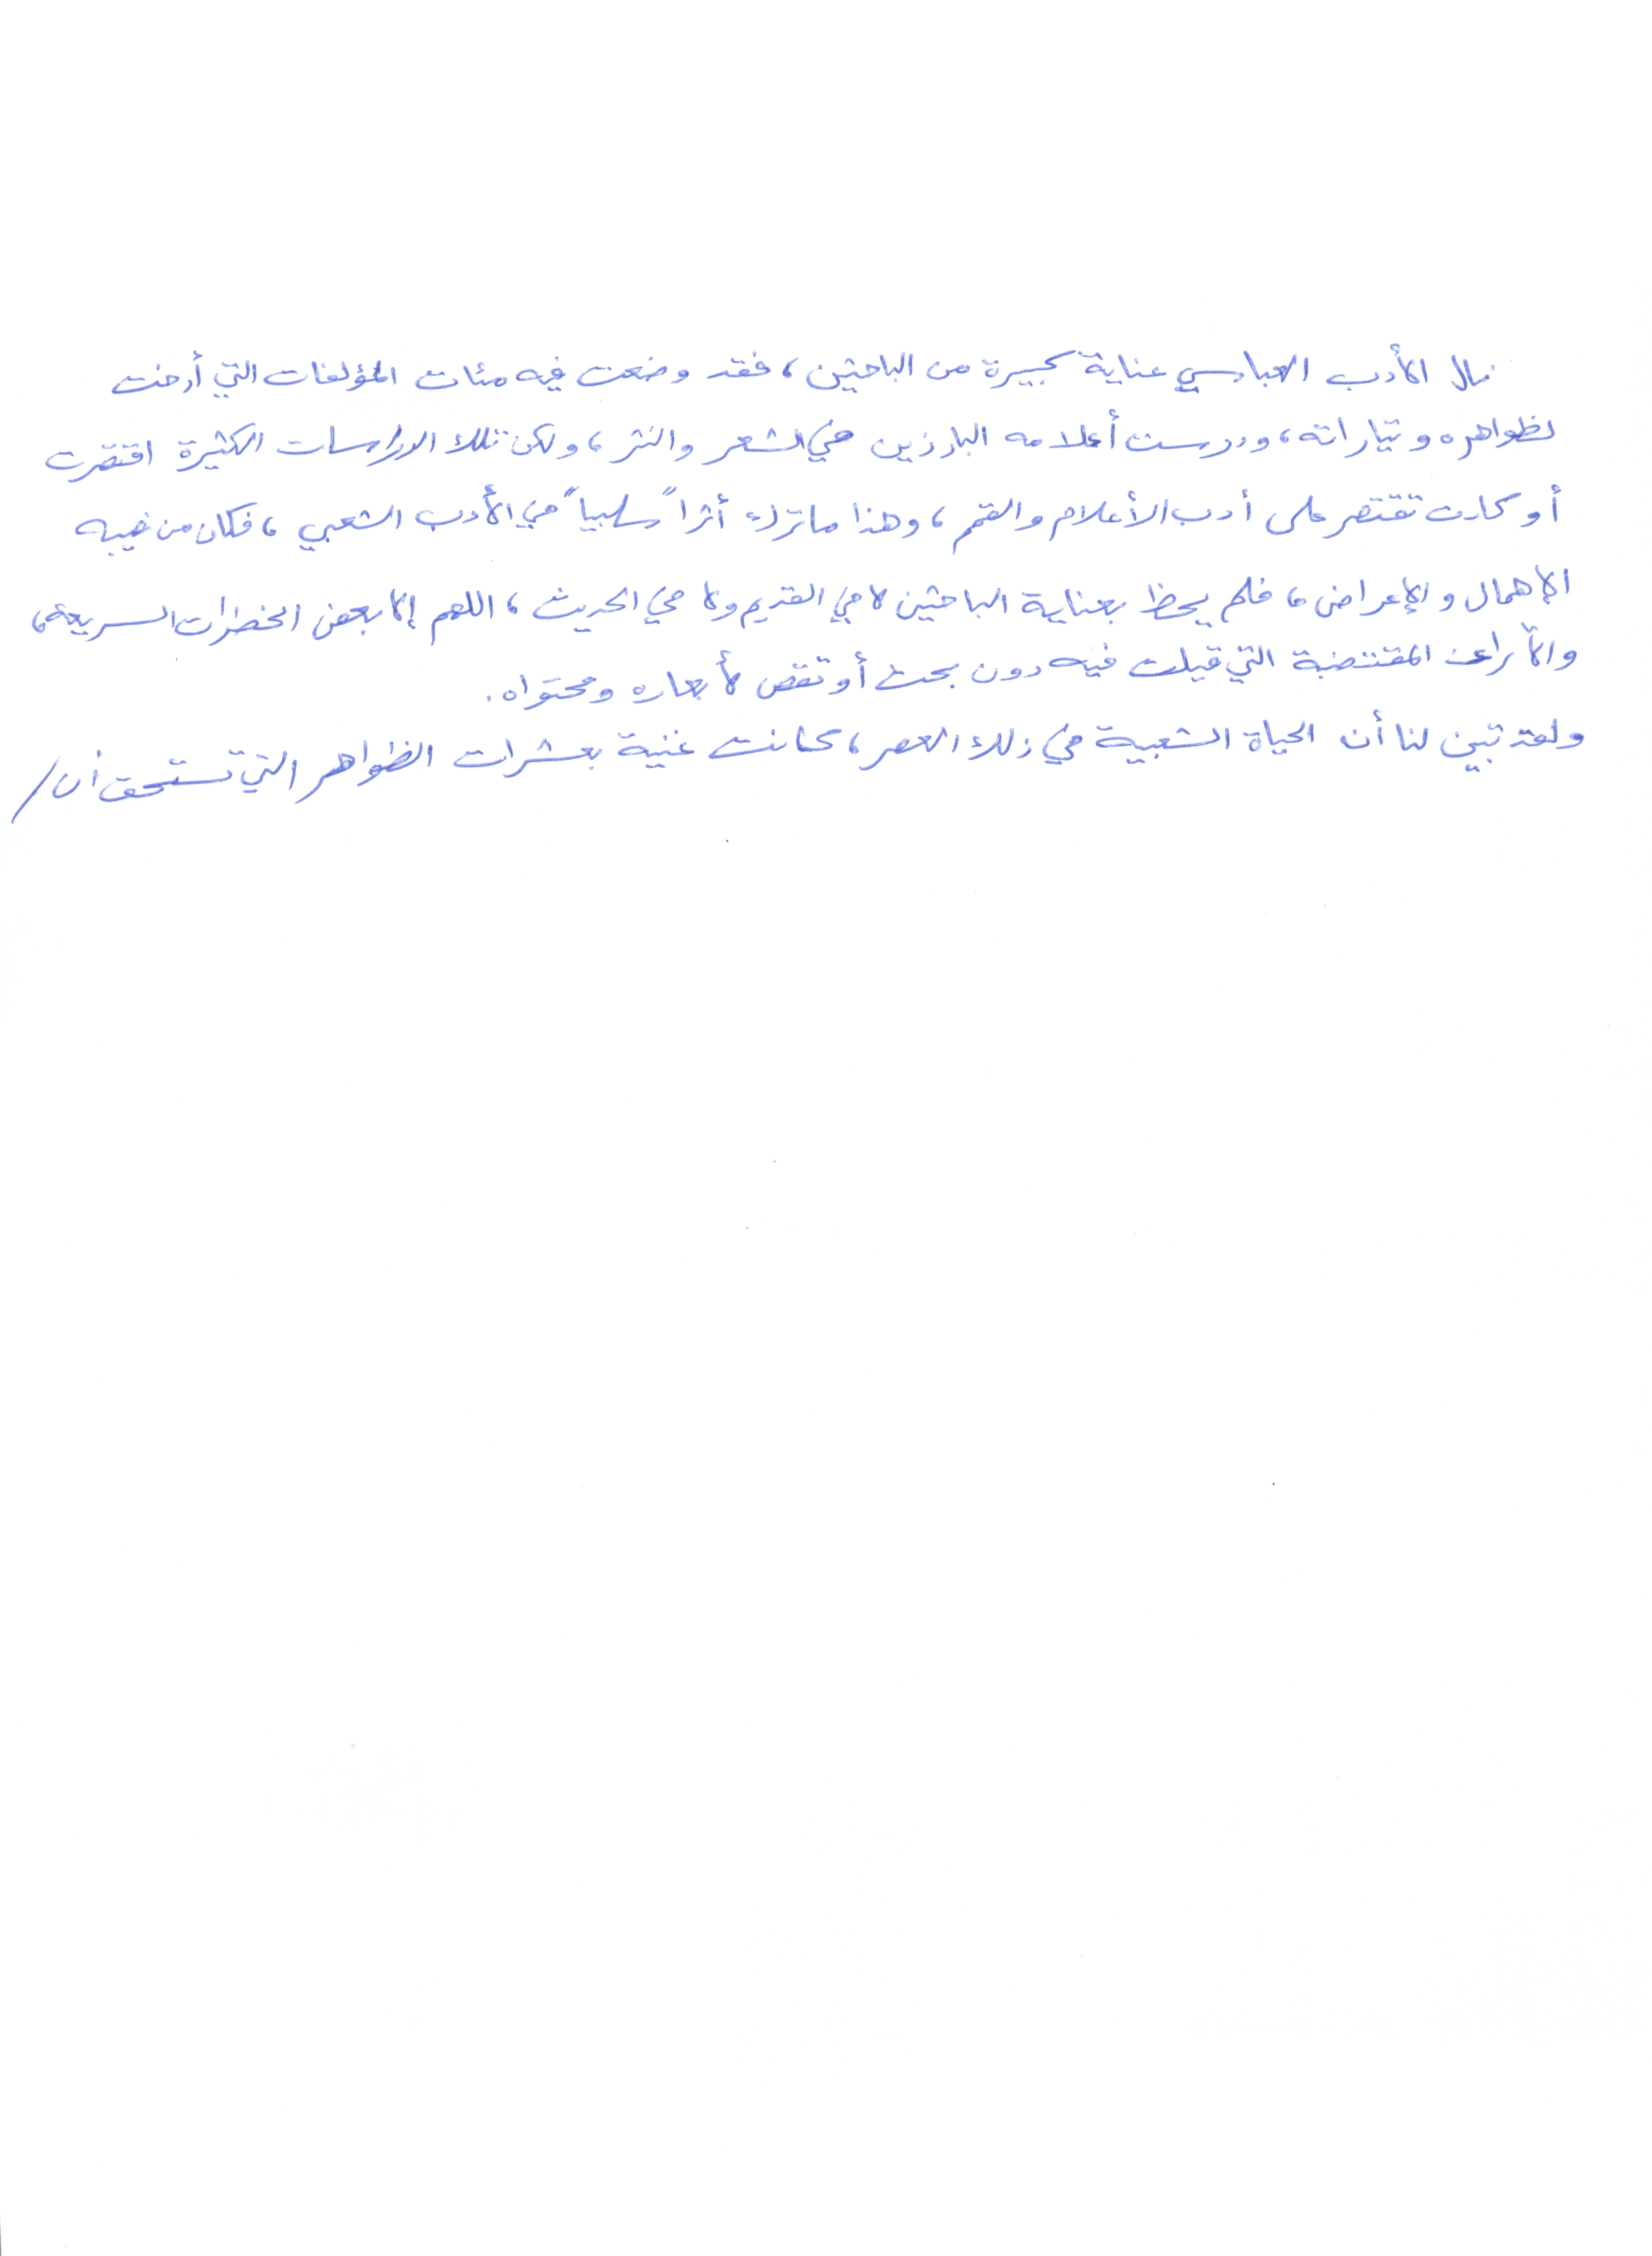 نال الأدب العباسي عناية كبيرة من الباحثين، فقد وضعت فيه مئات المؤلفات التي أرخت
لظواهره وتياراته، ودرست أعلامه البارزين في الشعر والنثر، ولكن تلك الدراسات الكثيرة اقتصرت
أو كادت تقتصر على أدب الأعلام والقمم، وهذا ما ترك أثراً سلبياً في الأدب الشعبي، فكان من نصيبه
الإهمال والإعراض، فلم يحظ بعناية الباحثين لا في القديم ولا في الحديث، اللهم إلا بعض الخطرات السريعة،
والآراء المقتضبة التي قيلت فيه دون بحث أو تقص لأبعاده ومحتواه.
ولقد تبين لنا أن الحياة الشعبية في ذلك العصر، كانت غنية بعشرات الظواهر التي تستحق أن /